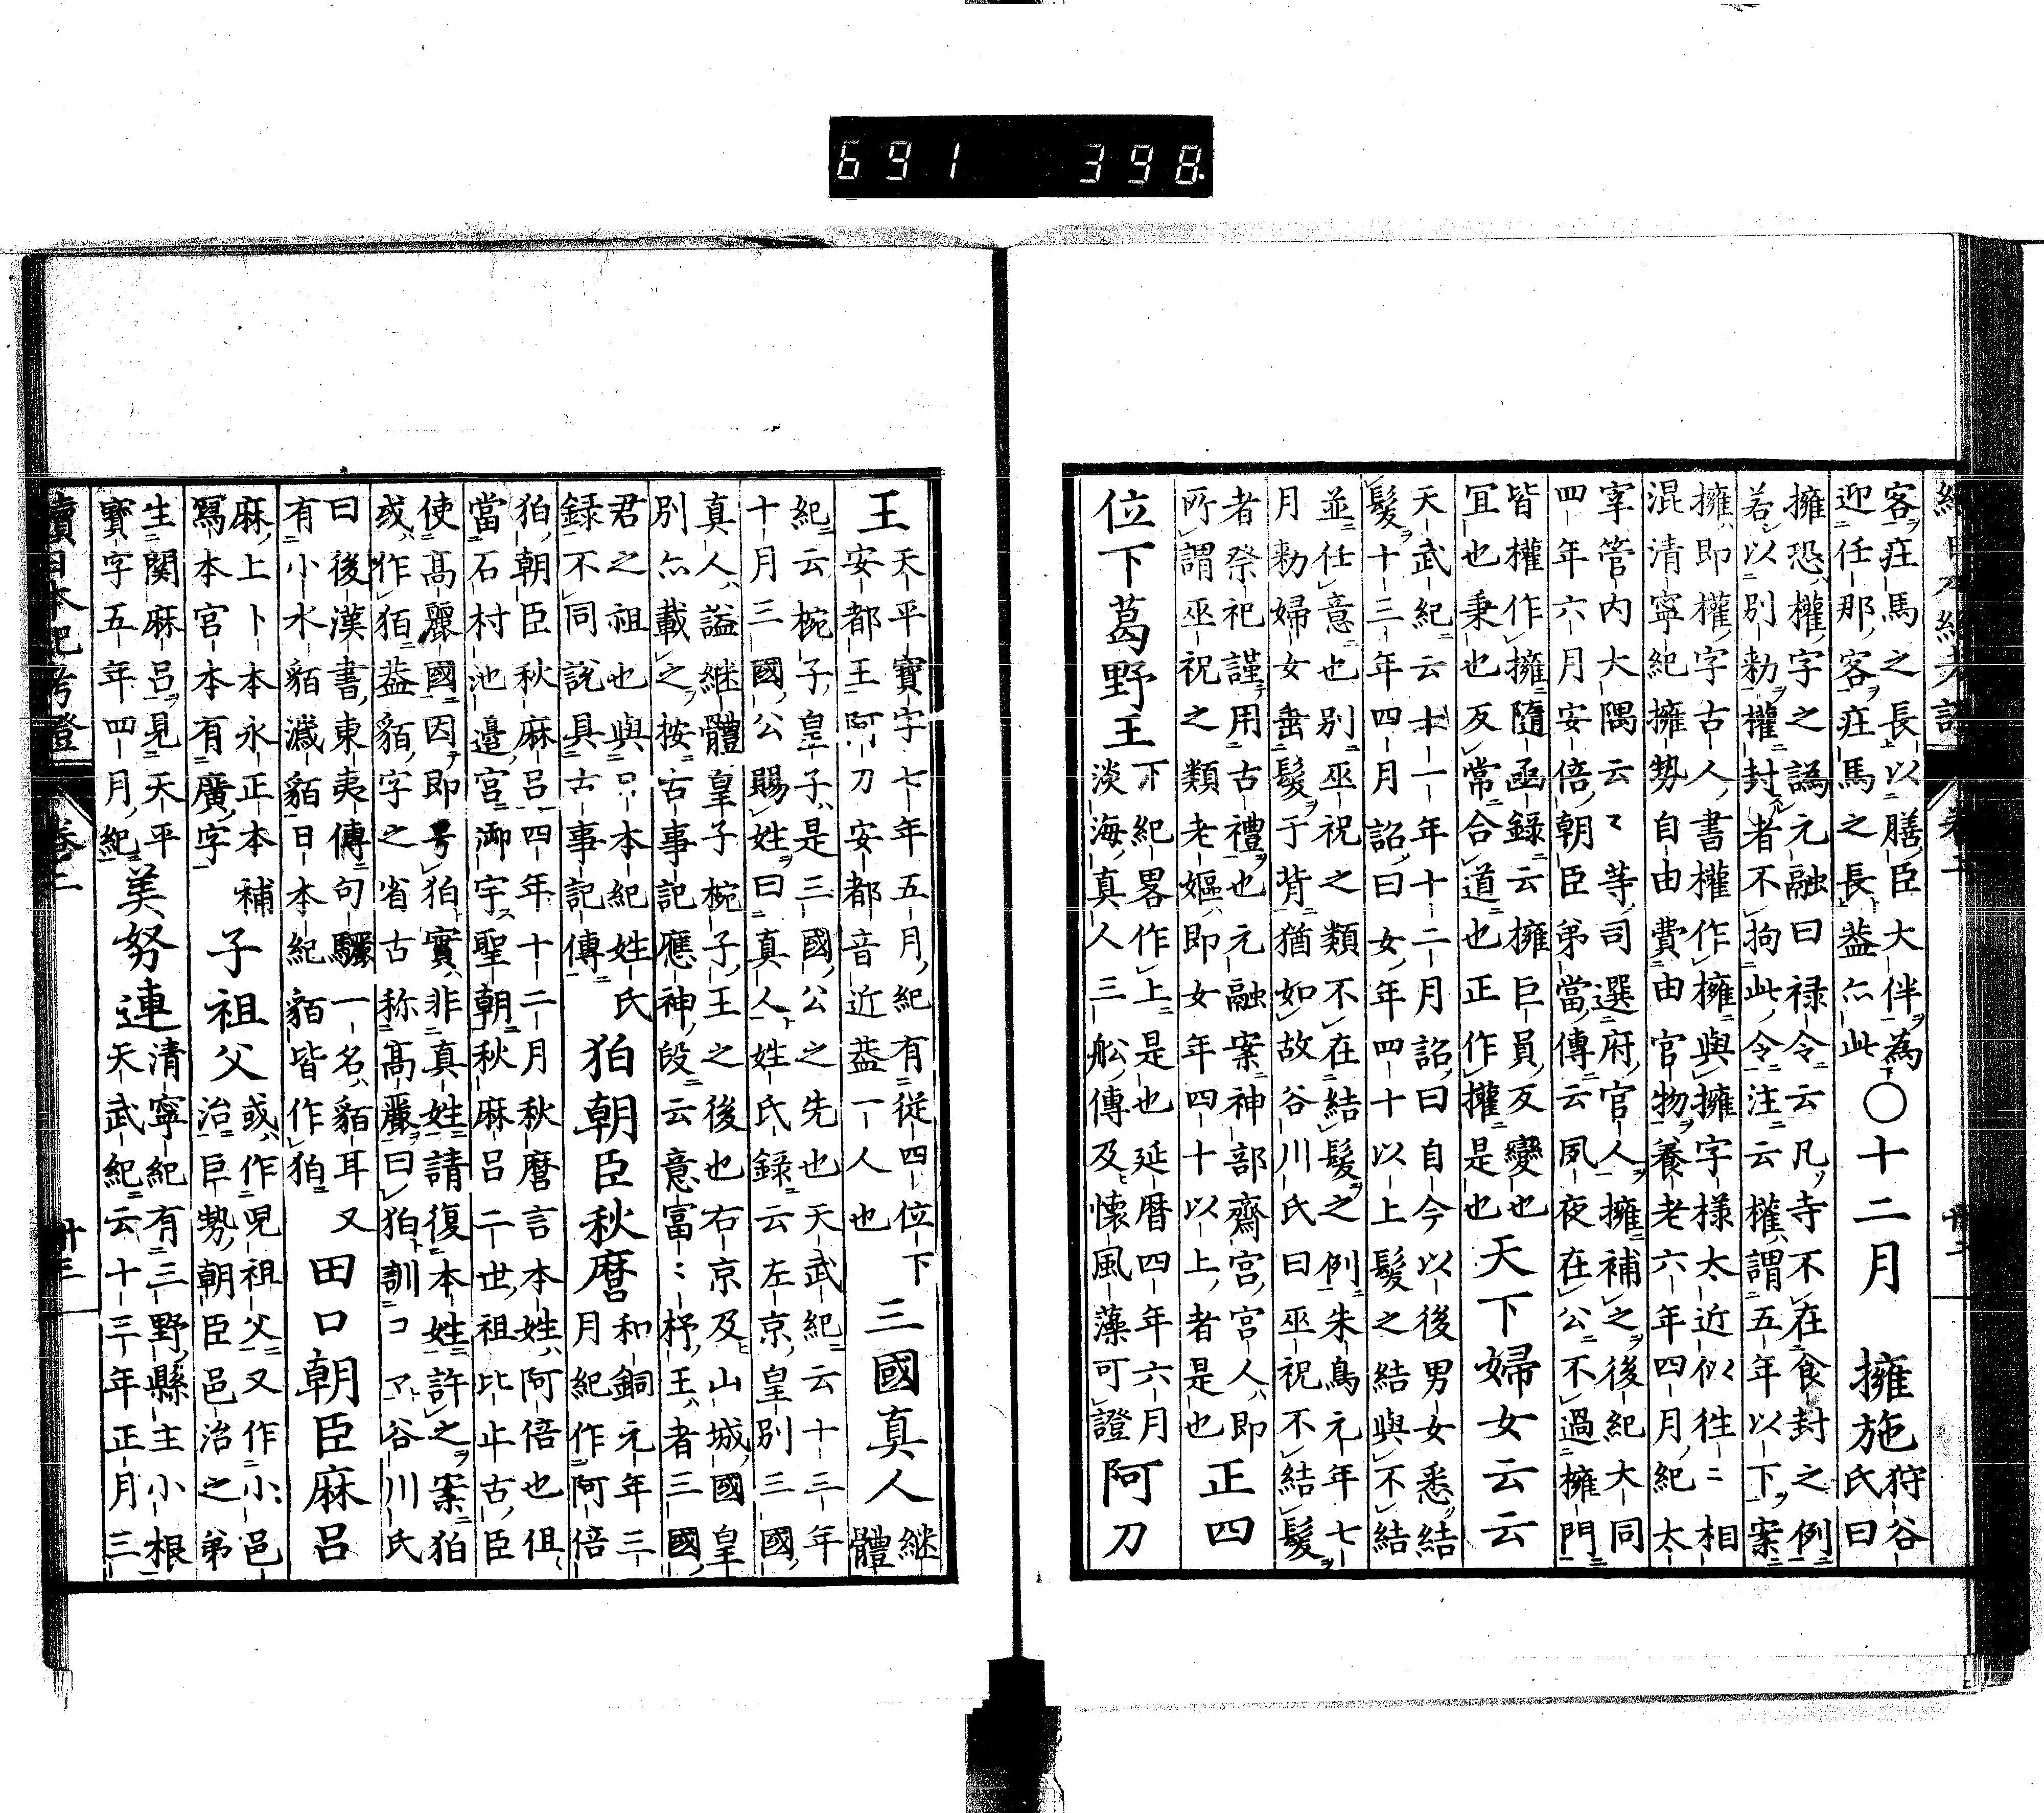 691 398
客疰馬之長以膳臣大伴為
迎任那客疰馬之長蓋亦此
○十二月 擁施
狩谷
氏曰
擁恐權字之譌元融曰禄令云凡寺不在食封之例
若以別勅權封者不拘此令注云權謂五年以下案
擁即權字古人書權作擁與擁字樣太近似往〻相
混清寧紀擁勢自由費由官物養老六年四月紀太
宰管内大隅云〻等司選府官人擁補之後紀大同
四年六月安倍朝臣弟當傳云夙夜在公不過擁門
皆權作擁隨函録云擁巨員反變也
宜也秉也反常合道也正作權是也
天下婦女云云
天武紀云十一年十二月詔曰自今以後男女悉結
髮十三年四月詔曰女年四十以上髮之結與不結
並任意也別巫祝之類不在結髮之例朱鳥元年七
月勅婦女垂髮于背猶如故谷川氏曰巫祝不結髮
者祭祀謹用古禮也元融案神部齋宮宮人即
所謂巫祝之類老嫗即女年四十以上者是也
正四
位下葛野王
下紀畧作上是也延暦四年六月
淡海真人三舩傳及懷風藻可證
阿刀
王
天平寶字七年五月紀有從四位下
安都王阿刀安都音近蓋一人也
三國真人
継
體
紀云椀子皇子是三國公之先也天武紀云十三年
十月三國公賜姓曰真人姓氏録云左京皇別三國
真人謚継體皇子椀子王之後也右京及山城國皇
別亦載之按古事記應神段云意富〻杼王者三國
君之祖也與日本紀姓氏
録不同説具古事記傳
狛朝臣秋麿
和銅元年三
月紀作阿倍
狛朝臣秋麻呂四年十二月秋麿言本姓阿倍也但
當石村池邉宮御宇聖朝秋麻呂二世祖比止古臣
使高麗國因即号狛實非真姓請復本姓許之案狛
或作狛蓋貊字之省古称高麗曰狛訓コマト谷川氏
曰後漢書東夷傳句驪一名貊耳又
有小水貊濊貊日本紀貊皆作狛
田口朝臣麻呂
麻上卜本永正本補
寫本宮本有廣字
子祖父
或作児祖父又作小邑
治巨勢朝臣邑治之弟
生関麻呂見天平
寶字五年四月紀
美努連
清寧紀有三野縣主小根
天武紀云十三年正月三
續日本紀考證 卷二 卅三